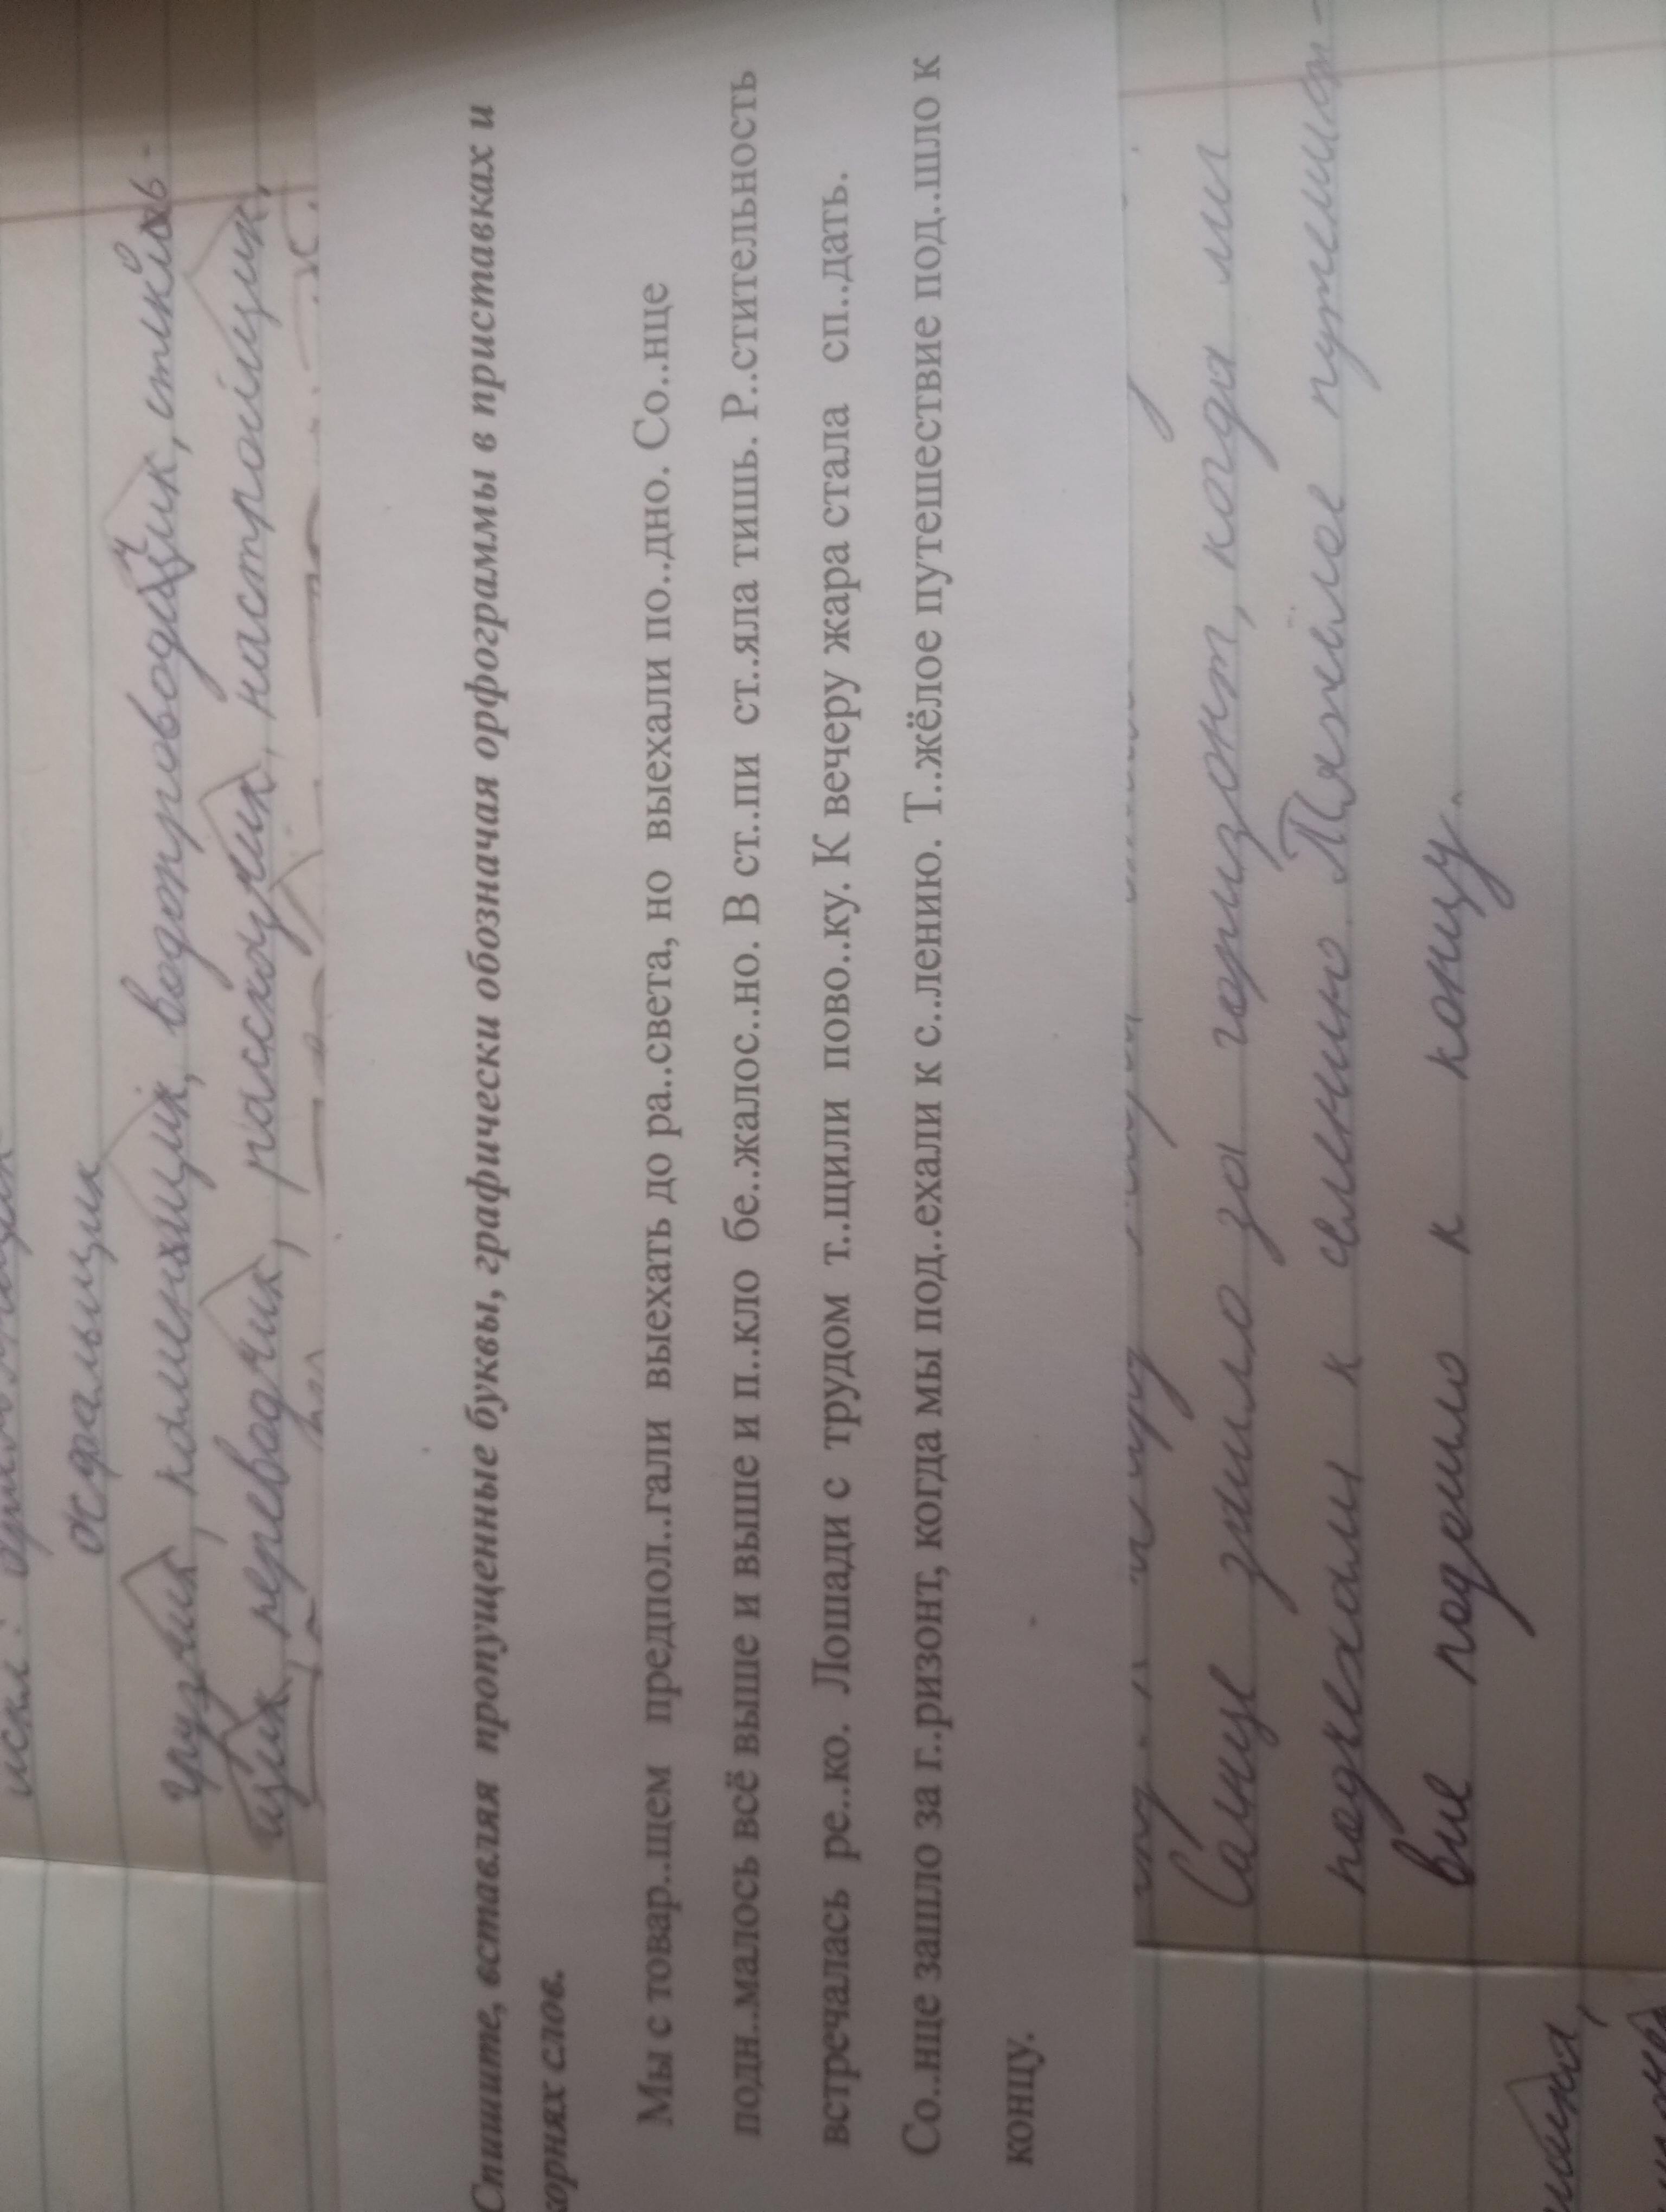 искл.:
асфальщик
грузчик, каменщик, водопроводчик, стеколь-
щик, переводчик, рассказчик, настройщик.
Спишите, вставляя пропущенные буквы, графически обозначая орфограммы в приставках и
корнях слов.
Мы с товар..щем предпол..гали выехать до ра..света, но выехали по..дно. Со..нце
подн..малось всё выше и выше и п..кло бе..жалос..но. В ст..пи ст..яла тишь. Р..стительность
встречалась ре..ко. Лошади с трудом т..щили пово..ку. К вечеру жара стала сп..дать.
Со..нце зашло за г..ризонт, когда мы под..ехали к с..лению. Т..жёлое путешествие под..шло к
концу.
зашло за горизонт, когда мы
подъехали к Тяжёлое путешест-
вие подошло к концу.